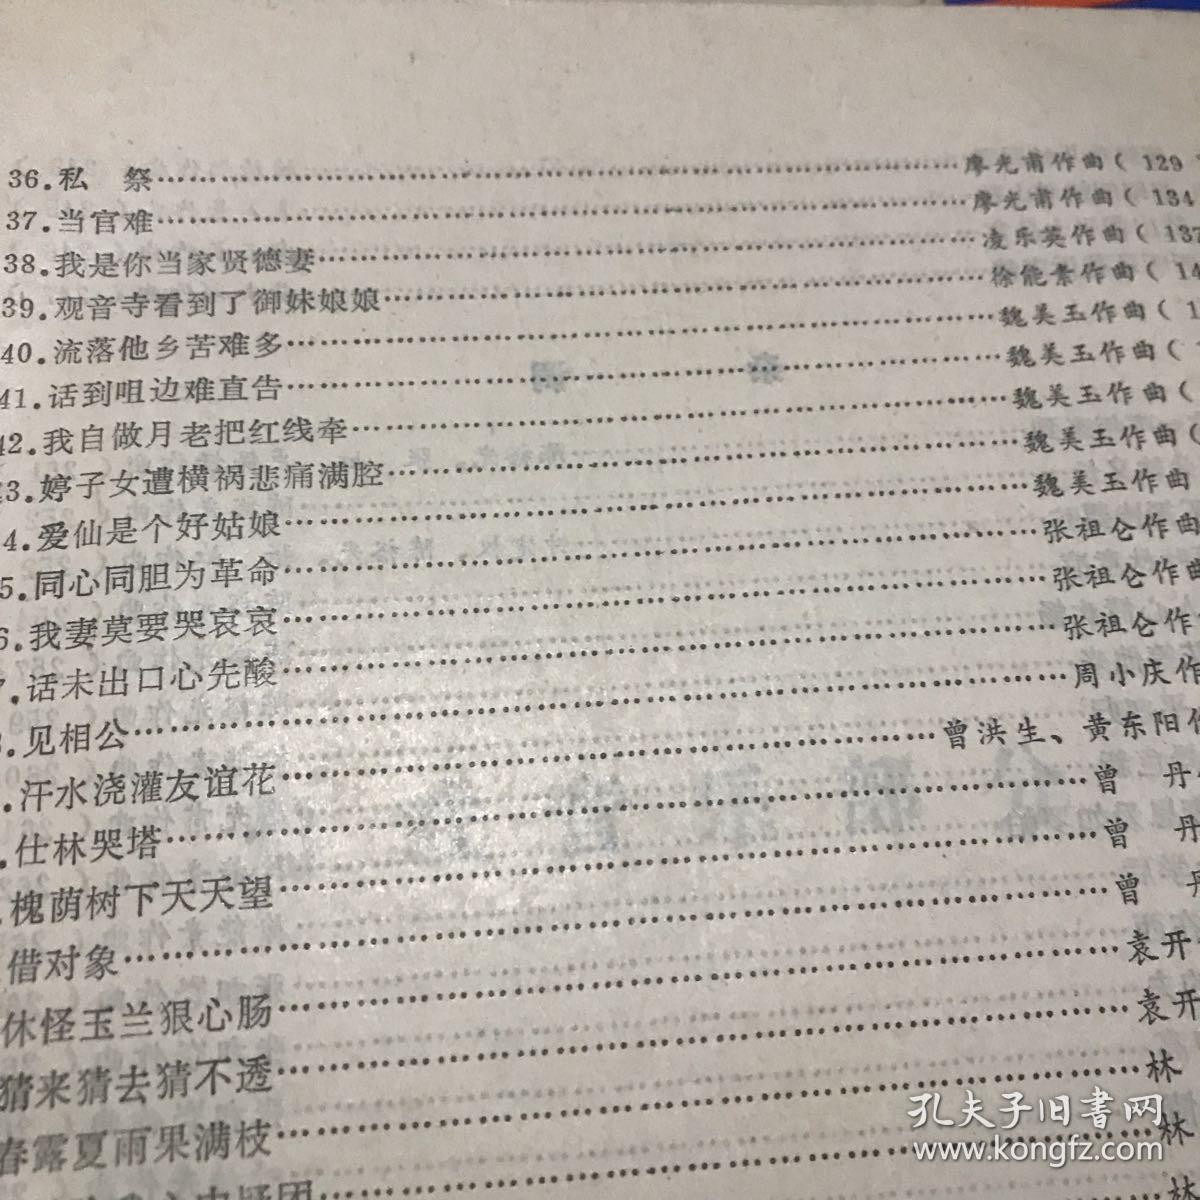 36.私　祭……廖光甫作曲( 129
37.当官难……廖光甫作曲( 134
38.我是你当家贤德妻……凌乐英作曲( 137
39.观音寺看到了御妹娘娘……徐能素作曲( 14
40.流落他乡苦难多……魏美玉作曲( 1
41.话到咀边难直告……魏美玉作曲(
42.我自做月老把红线牵……魏美玉作曲(
3.婷子女遭横祸悲痛满腔……魏美玉作曲(
4.爱仙是个好姑娘……魏美玉作曲
5.同心同胆为革命……张祖仑作曲
6.我妻莫要哭哀哀……张祖仑作曲
7.话未出口心先酸……张祖仑作
.见相公……周小庆作
.汗水浇灌友谊花……曾洪生、黄东阳作
.仕林哭塔……曾　丹
.槐荫树下天天望……曾　丹
借对象……曾　丹
休怪玉兰狠心肠……袁开
猜来猜去猜不透……袁开
春露夏雨果满枝……林
心中疑团……林
林
孔夫子旧书网
www.kongfz.com